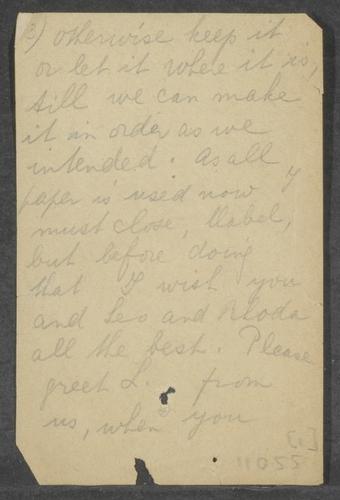 3) otherwise keep it
or let it where it is,
till we can make
it in order as we
intended. As all
paper is used now I
must close, Mabel,
but before doing
that I wish you
and Leo and Rhoda
all the best. Please
greet L. from
us, when you
[1]
11055